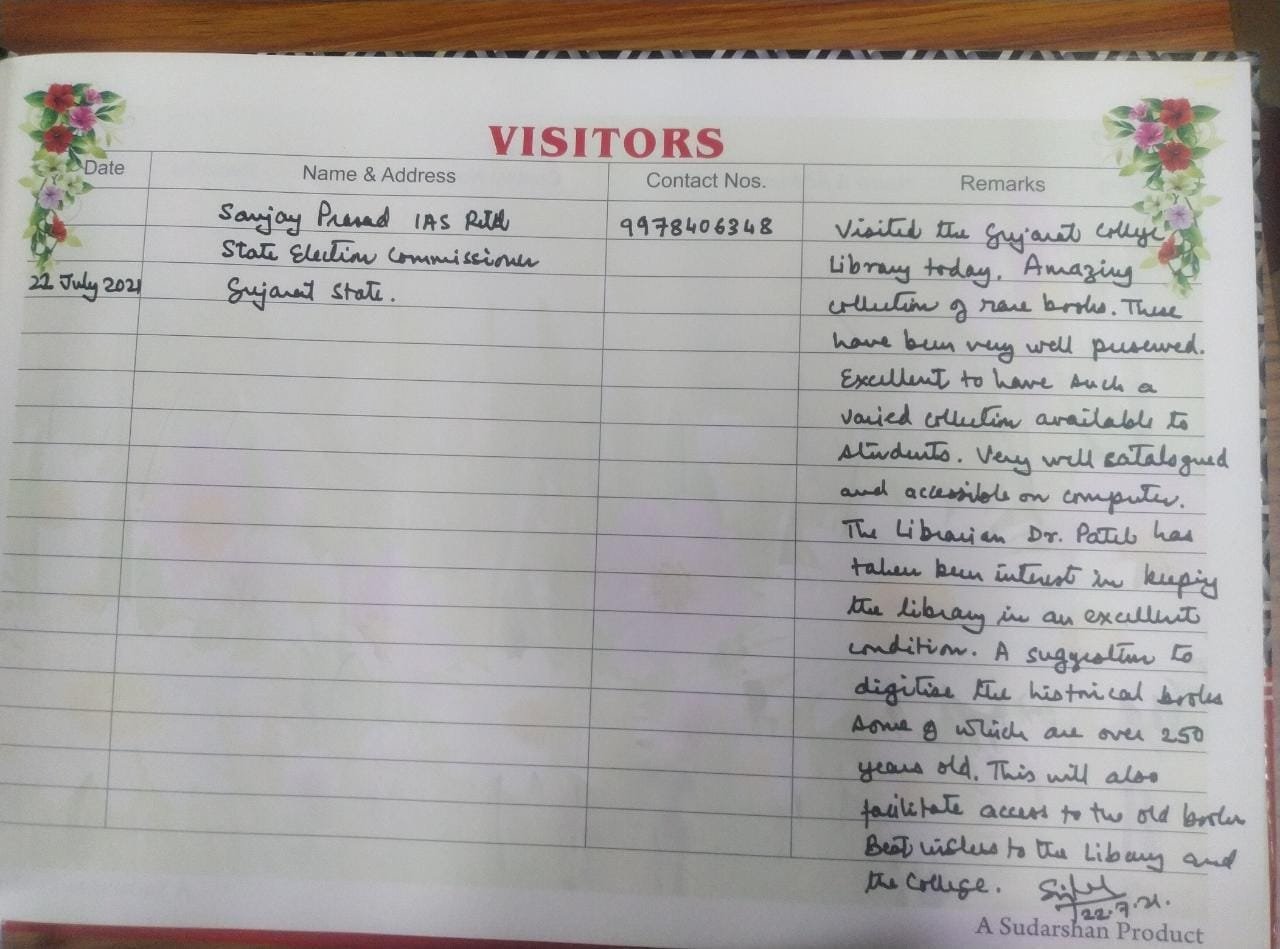 VISITORS
Date Name & Address Contact Nos. Remarks
Sanjay Prasad IAS Retd 9978406348 Visited the Gujarat College
State Election Commissioner Library today. Amazing
22 July 2021 Gujarat State. collection of rare books. These
have been very well preserved.
Excellent to have such a
varied collection available to
students. Very well catalogued
and accessible on computer.
The Librarian Dr. Patel has
taken keen interest in keeping
the library in an excellent
condition. A suggestion to
digitise the historical books
some of which are over 250
years old. This will also
facilitate access to the old books
Best wishes to the Library and
the College.
22.7.21.
A Sudarshan Product